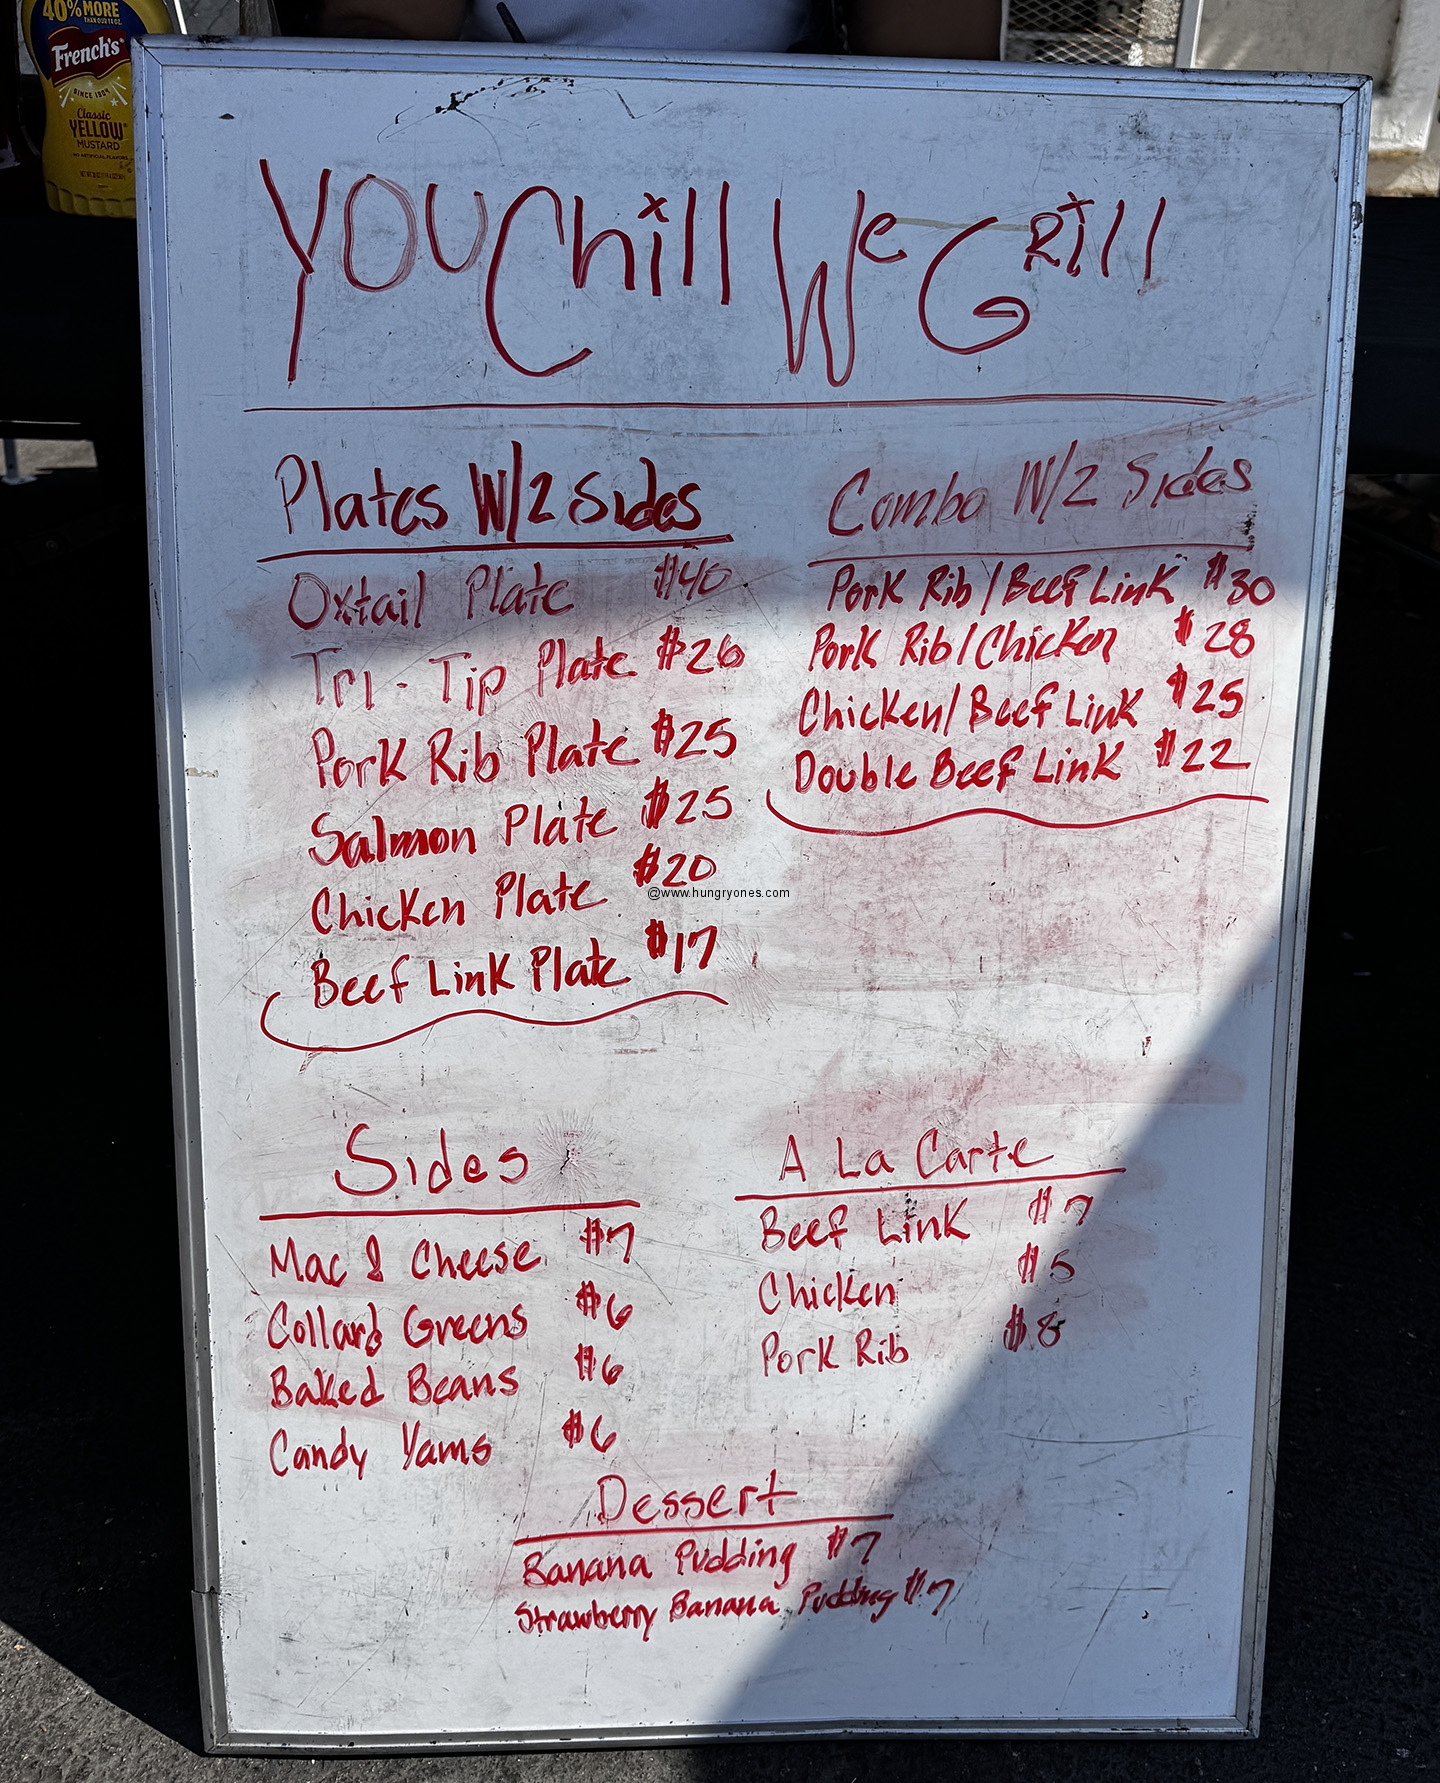 40% MORE
THAN OUR 14 OZ.
French's
SINCE 1904
Classic
YELLOW
MUSTARD
NO ARTIFICIAL FLAVORS
YOU Chill We GRill
Plates W/2 Sides
Oxtail Plate $40
Tri-Tip Plate $26
Pork Rib Plate $25
Salmon Plate $25
Chicken Plate $20
Beef Link Plate $17
Combo W/2 Sides
Pork Rib/Beef Link $30
Pork Rib/Chicken $28
Chicken/Beef Link $25
Double Beef Link $22
@www.hungryones.com
Sides
Mac & Cheese $7
Collard Greens $6
Baked Beans $6
Candy Yams $6
A La Carte
Beef Link $7
Chicken $5
Pork Rib $8
Dessert
Banana Pudding $7
Strawberry Banana Pudding $7